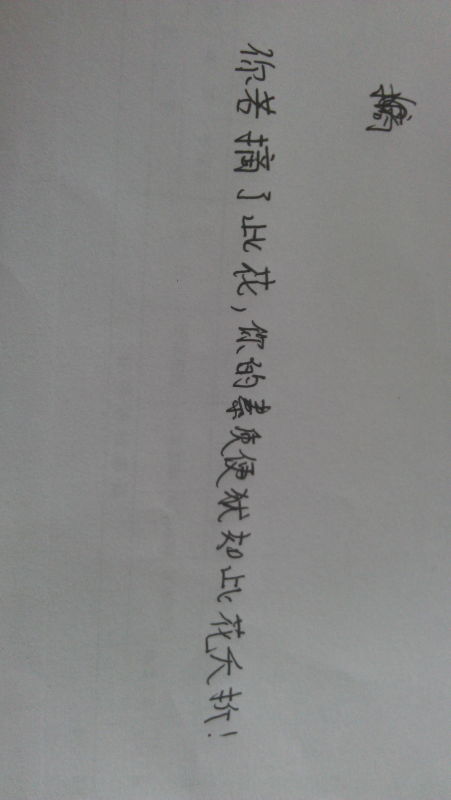 你若摘了此花，你的素质便犹如此花夭折！